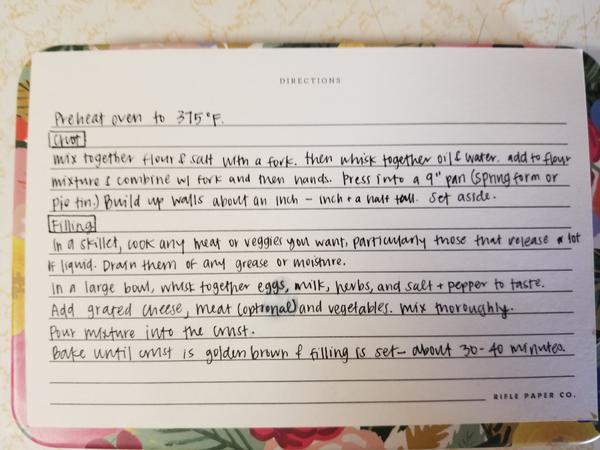 DIRECTIONS
Preheat oven to 375°F.
Crust
mix together flour & salt with a fork. then whisk together oil & water. add to flour
mixture & combine w/ fork and then hands. Press into a 9" pan (springform or
pie tin.) Build up walls about an inch - inch + a half tall. Set aside.
Filling
In a skillet, cook any meat or veggies you want, particularly those that release a lot
of liquid. Drain them of any grease or moisture.
In a large bowl, whisk together eggs, milk, herbs, and salt + pepper to taste.
Add grated cheese, meat (optional) and vegetables. mix thoroughly.
Pour mixture into the crust.
Bake until crust is golden brown & filling is set - about 30-40 minutes.
RIFLE PAPER CO.